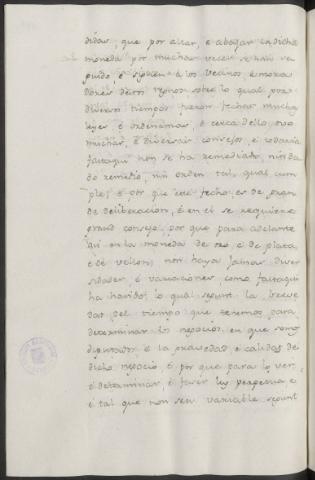 didas, que por alzar, e abajar la dicha
moneda por muchas veces se han se
guido, e siguen a los vecinos, e mora
dores destos reynos sobre lo qual por
diversos tiempos fueron fechas muchas
leyes, e ordenanzas, e cerca dello, ovo
muchos, e diversos consejos, e todavia
fastaqui non se ha remediado, nin da
do remedio, nin orden tal, qual cum
ple; e por que este fecho, es de gran
de deliberacion, e en el se requiere
grand consejo, por que para adelante
qui en la moneda de oro, e de plata,
e de vellon, non haya jamas diver
sidades, e variaciones, como fastaqui
ha havido, lo qual segunt la breve
dat del tiempo que tenemos para
determinar los negocios, en que somos
diputados, e la gravedad, e calidad de
dicho negocio, e por que para lo ver,
e determinar, e facer ley perpetua, e
e tal que non sea variable segunt